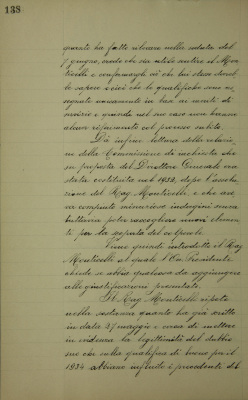 138
quanto ha fatto rilevare nella seduta del
giugno, crede che sia utile sentire il Mon
ticelli e confermargli ciò che lui deve dareb
be sapere e cioè che le qualifiche sono as
segnate unicamente in base ai meriti di
servizio e quindi nel suo caso non hanno
alcun riferimento col processo subito.
Dà infine lettura della relazio
ne della Commissione di inchiesta che
su proposta del Direttore Generale era
stata costituita nel 1932, dopo l'assolu
zione del Rag. Monticelli, e che ave
va compiute minuziose indagini senza
tuttavia poter raccogliere nuovi elemen
ti per la scoperta del colpevole.
Viene quindi introdotto il Rag.
Monticelli al quale l'On. Presidente
chiede se abbia qualcosa da aggiungere
alle giustificazioni presentate.
Il Rag. Monticelli ripete
nella sostanza quanto ha già scritto
in data 27 maggio e cerca di mettere
in evidenza la legittimità del dubbio
suo che sulla qualifica di buono per il
1934 abbiano influito i precedenti del